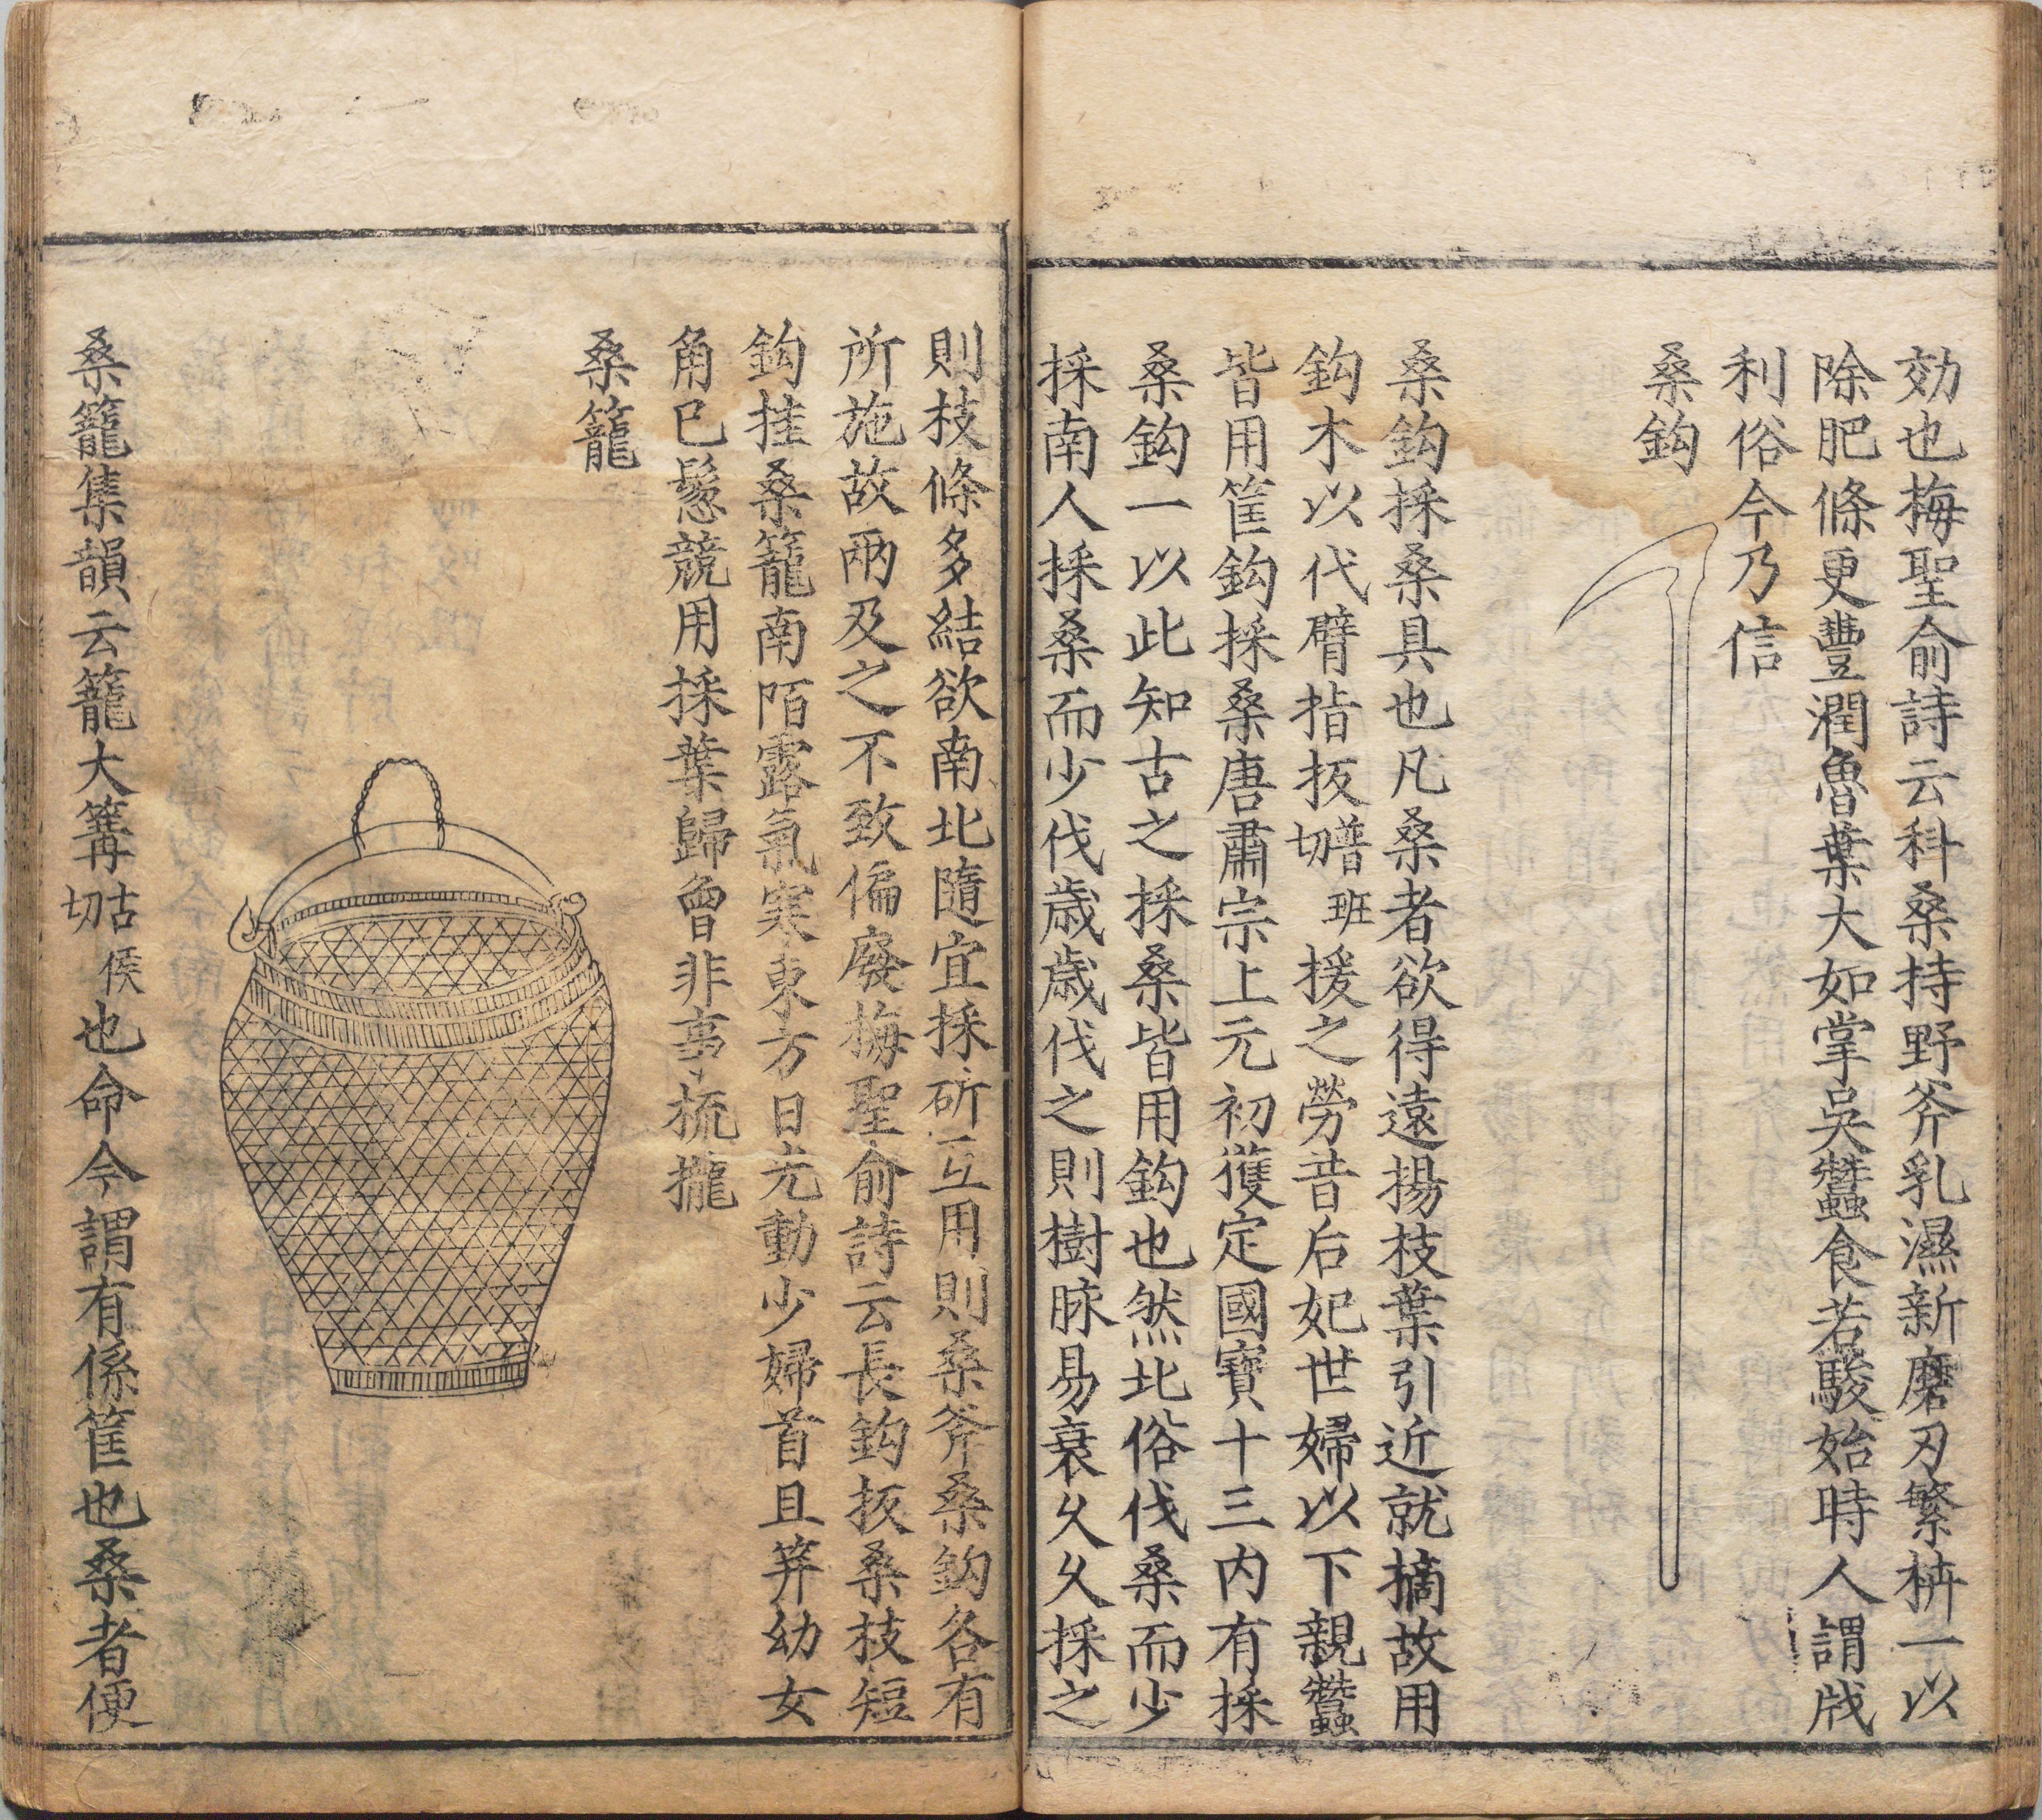 効也梅聖俞詩云科桑持野斧乳濕新磨刃繁枿一以
除肥條更豐潤魯葉大如掌吳蠶食若駿始時人謂戕
利俗今乃信
桑鈎
桑鈎採桑具也凡桑者欲得遠揚枝葉引近就摘故用
鈎木以代臂指扳普班切援之勞昔后妃世婦以下親蠶
皆用筐鈎採桑唐肅宗上元初獲定國寶十三內有採
桑鈎一以此知古之採桑皆用鈎也然北俗伐桑而少
採南人採桑而少伐歲歲伐之則樹脉易衰久久採之
則枝條多結欲南北隨宜採斫互用則桑斧桑鈎各有
所施故兩及之不致偏廢梅聖俞詩云長鈎扳桑枝短
鈎挂桑籠南陌露氣寒東方日光動少婦首且笄幼女
角已鬆競用採葉歸曾非事梳攏
桑籠
桑籠集韻云籠大篝古侯切也命今謂有係筐也桑者便